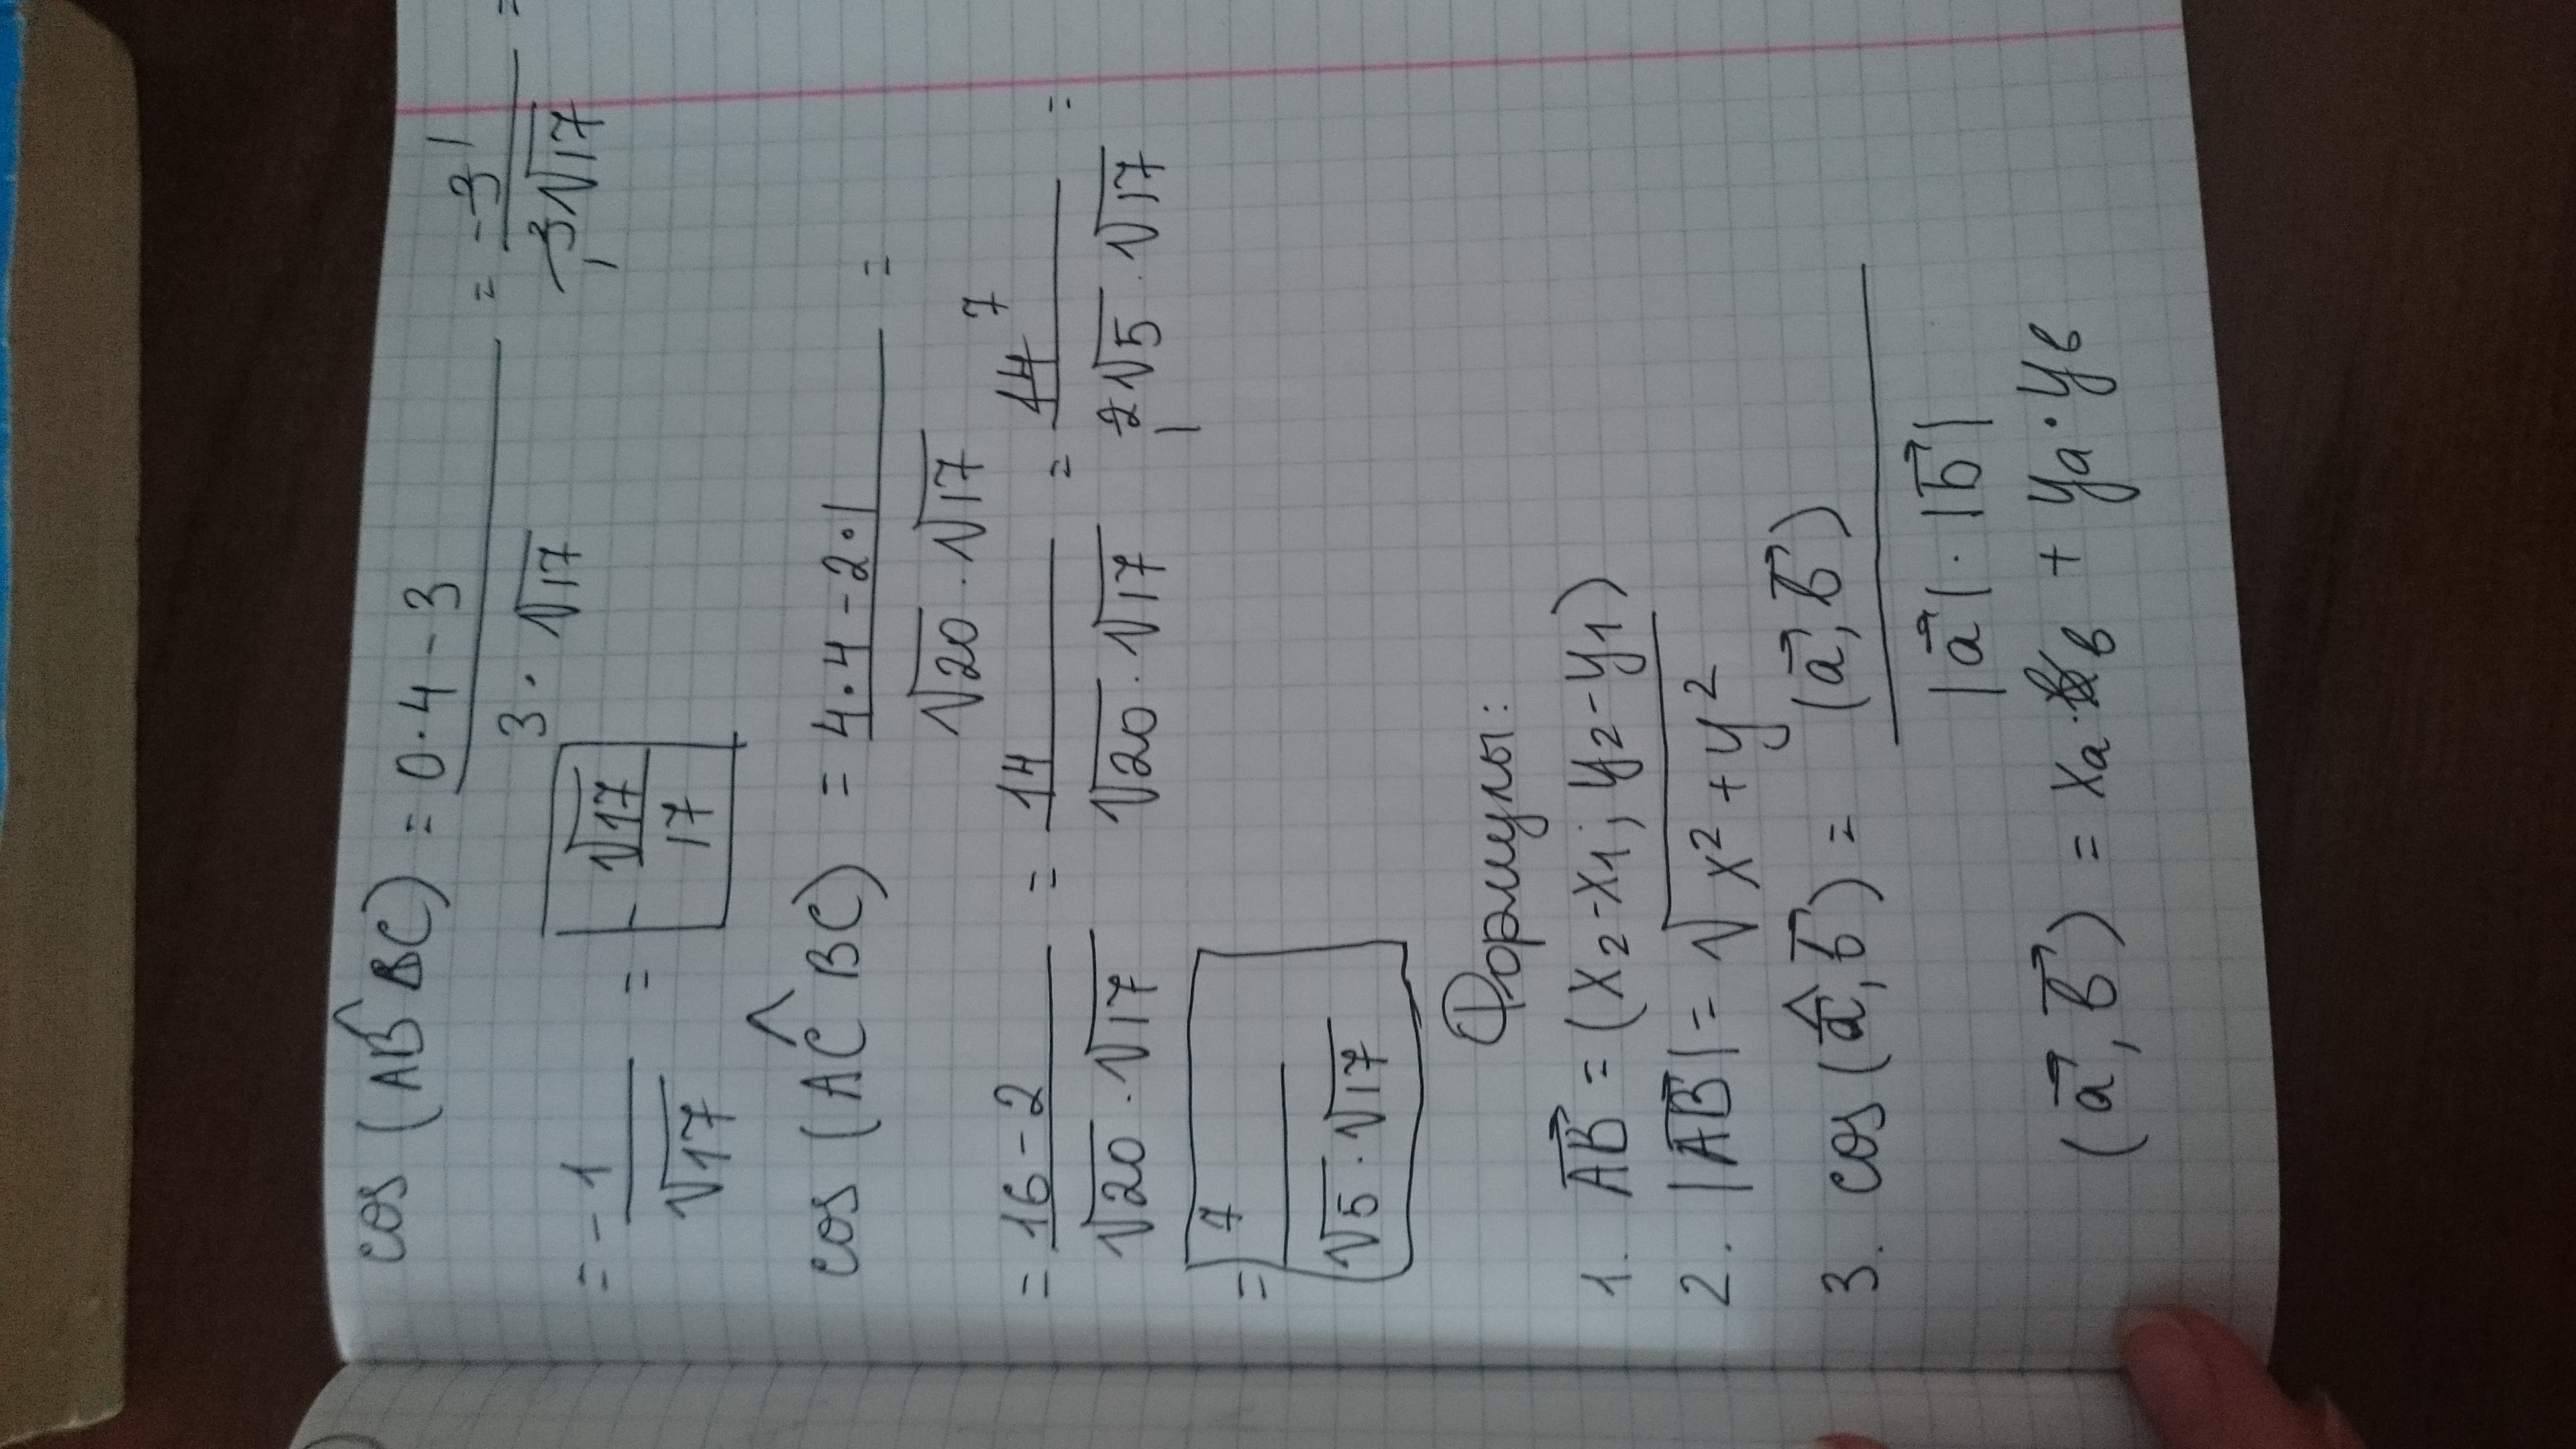 cos (AB^BC) = 0·4-3 / 3·√17 = -3 1 / 3√17 1 =
= -1/√17 = -√17/17
cos (AC^BC) = 4·4-2·1 / √20·√17 =
= 16-2 / √20·√17 = 14 / √20·√17 = 14 7 / 2√5·√17 1 =
= 7 / √5·√17
Формулы:
1. AB⃗ = (x₂-x₁; y₂-y₁)
2. |AB⃗| = √x²+y²
3. cos (a⃗,^b⃗) = (a⃗, b⃗) / |a⃗|·|b⃗|
(a⃗, b⃗) = xₐ·xв + yₐ·yв